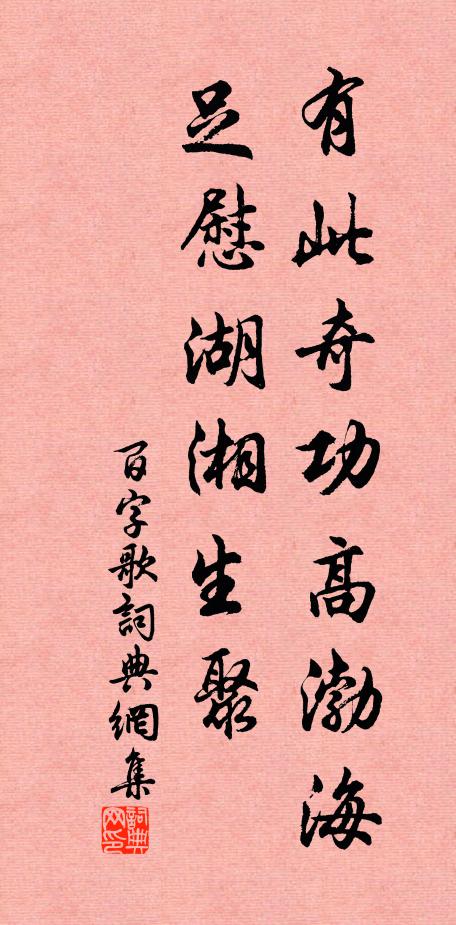 有此奇功高渤海
足慰湖湘生聚
百字歌詞典網集
詞典网印